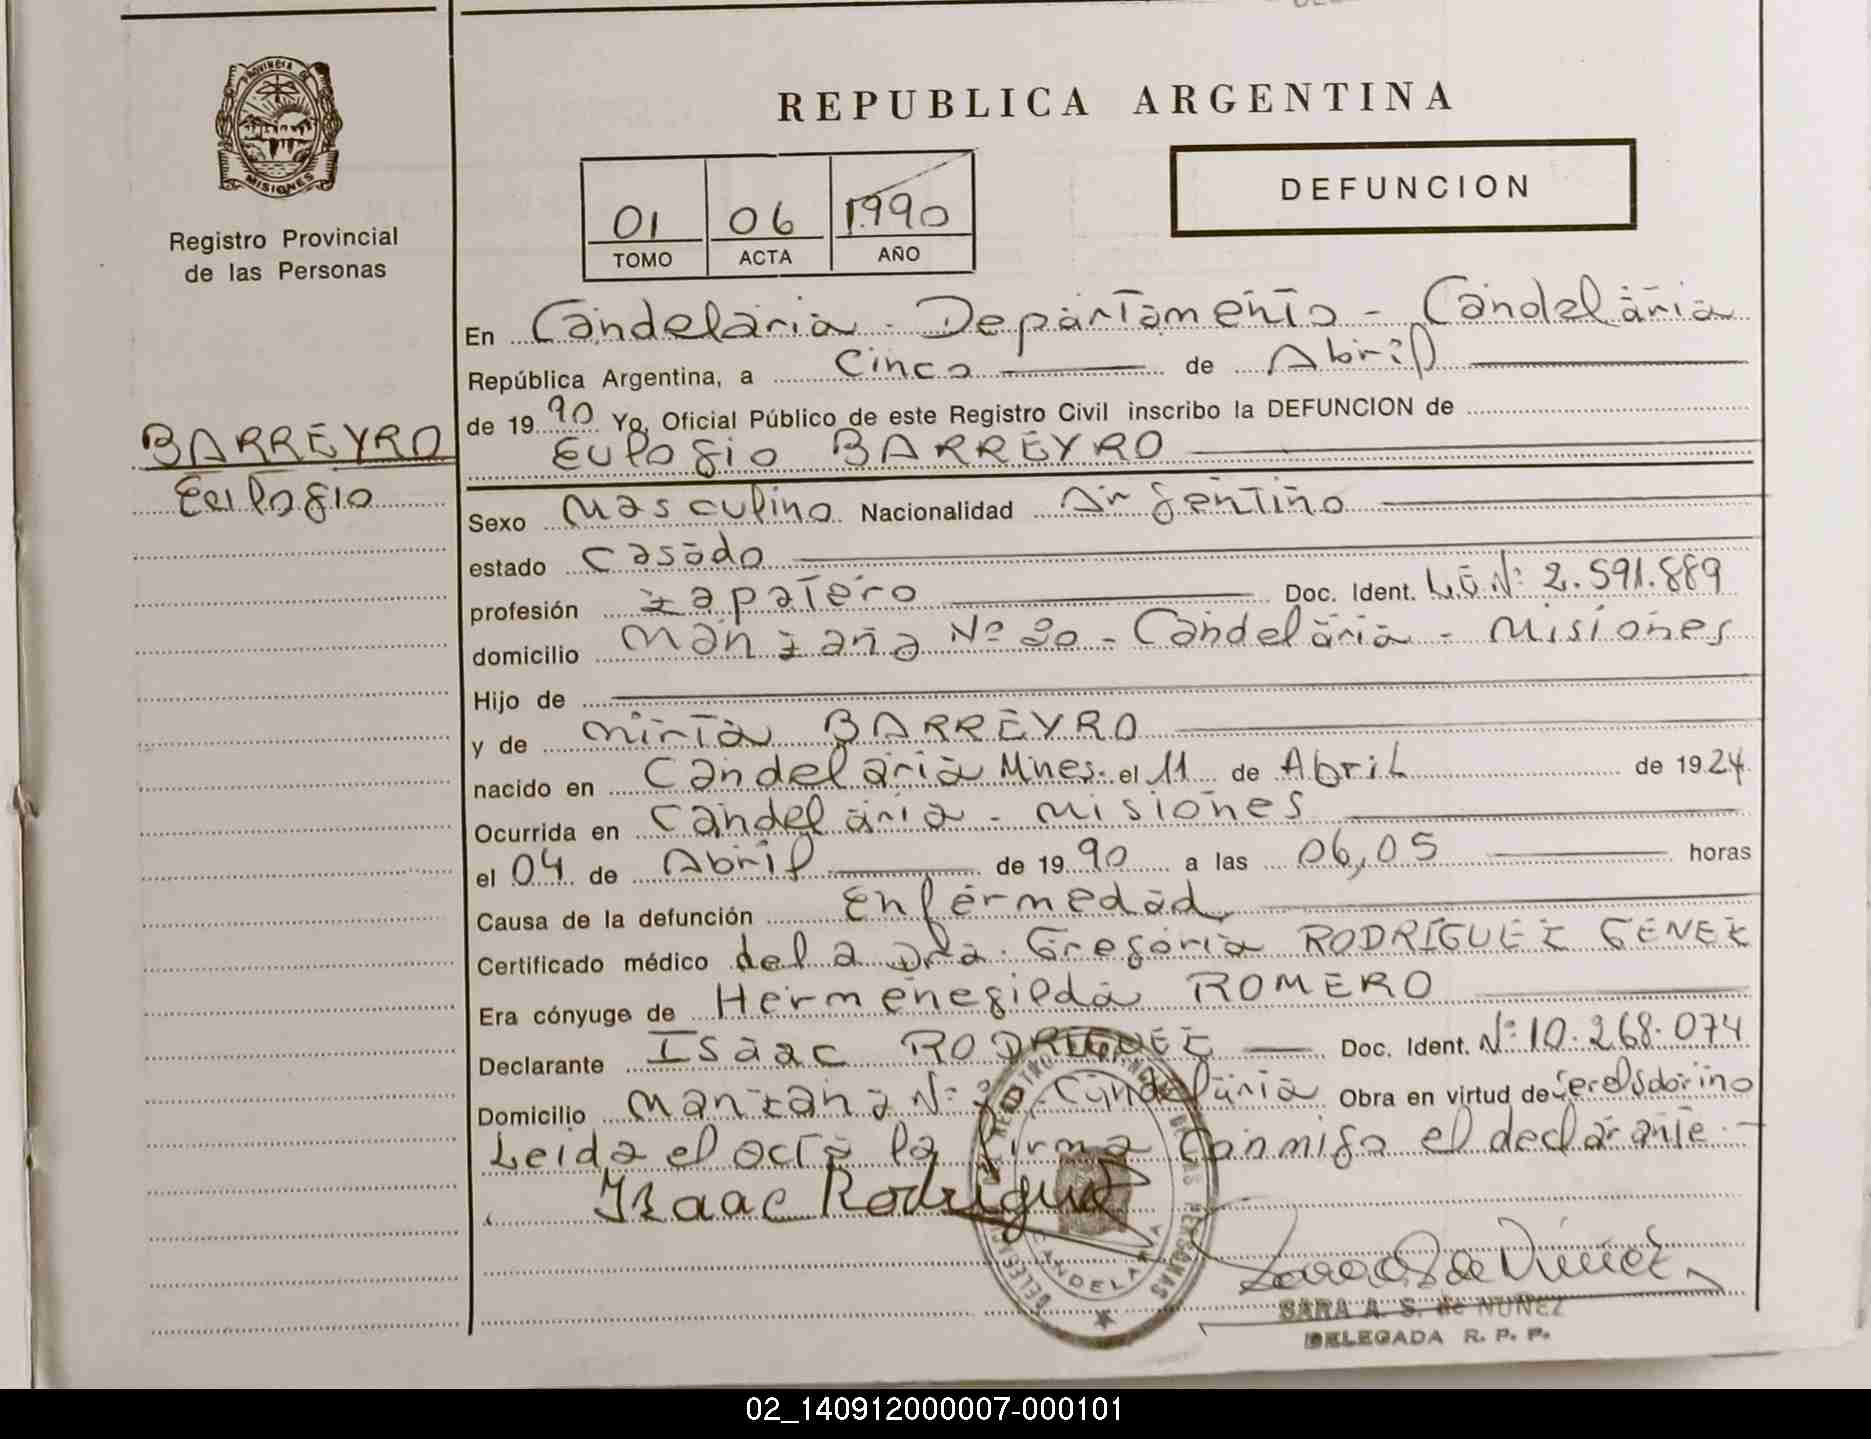 PROVINCIA DE
MISIONES
Registro Provincial
de las Personas
BARREYRO
Eulogio
REPUBLICA ARGENTINA
01 06 1990
TOMO ACTA AÑO
DEFUNCION
En Candelaria - Departamento - Candelaria
República Argentina, a Cinco de Abril
de 1990 Yo, Oficial Público de este Registro Civil inscribo la DEFUNCION de
Eulogio BARREYRO
Sexo Masculino Nacionalidad Argentino
estado Casado
profesión zapatero Doc. Ident. L.E. Nº: 2.591.889
domicilio Manzana Nº 20 - Candelaria - Misiones
Hijo de
y de Mirta BARREYRO
nacido en Candelaria Mnes. el 11 de Abril de 1924
Ocurrida en Candelaria - Misiones
el 04 de Abril de 1990 a las 06,05 horas
Causa de la defunción Enfermedad
Certificado médico de la Dra. Gregoria RODRIGUEZ GENEZ
Era cónyuge de Hermenegilda ROMERO
Declarante Isaac RODRIGUEZ Doc. Ident. Nº: 10.268.074
Domicilio Manzana Nº: 20 - Candelaria Obra en virtud de
Leida el acta la firma Conmigo el declarante.-
Isaac Rodriguez
CANDELARIA
SARA A. S. de NUÑEZ
DELEGADA R. P. P.
02_140912000007-000101